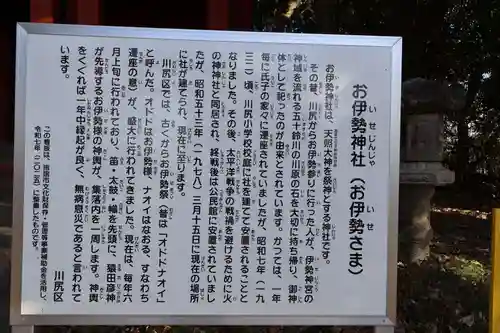 お伊勢神社（お伊勢さま）
いせじんじゃ
いせ
お伊勢神社は、天照大神を祭神とする神社です。
その昔、川尻からお伊勢参りに行った人が、伊勢神宮の
神域を流れる五十鈴川の川原の石を大切に持ち帰り、御神
体として祀ったのが由来とされています。かつては、一年
毎に氏子の家々に遷座されていましたが、昭和七年（一九
三二）頃、川尻小学校校庭に社を建てて安置されることと
なりました。その後、太平洋戦争の戦禍を避けるために火
の神神社と同居され、終戦後は公民館に安置されていまし
たが、昭和五十三年（一九七八）三月十五日に現在の場所
に社が建てられ、現在に至ります。
川尻区では、古くからお伊勢祭（昔は「オドトナオイ」
と呼んだ。オドトはお伊勢様、ナオイはなおる、すなわち
遷座の意）が、盛大に行われてきました。現在は、毎年六
月上旬に行われており、笛・太鼓・輪を先頭に、猿田彦神
が先導するお伊勢様の神輿が、集落内を一周します。神輿
をくぐれば一年中縁起が良く、無病息災であると言われて
います。
川尻区
この看板は、指宿市文化財保存・管理等事業補助金を活用し、
令和七年（二〇二五）に整備したものです。